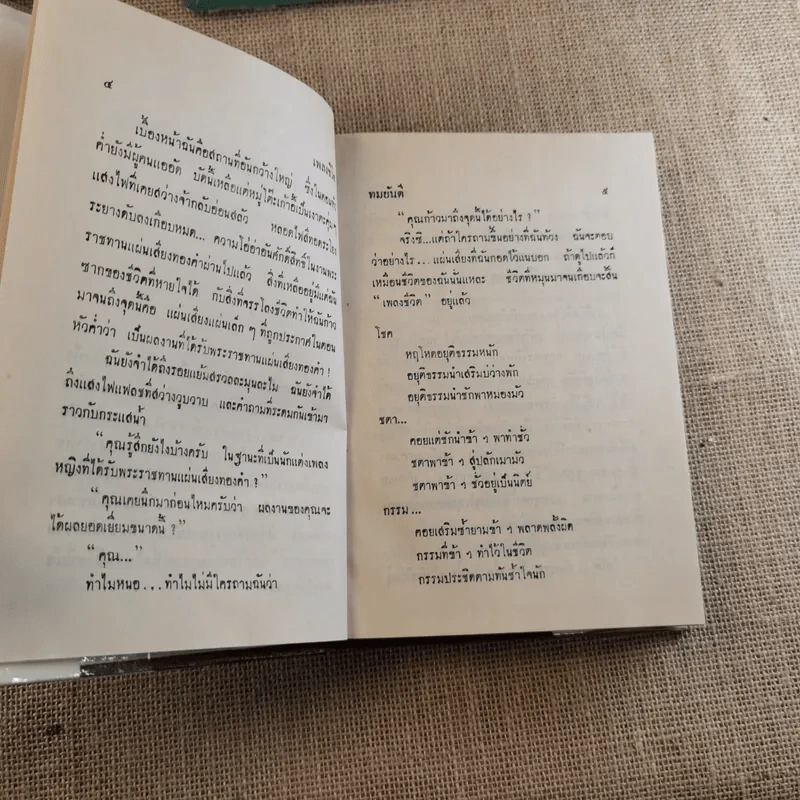 ๔
เพลงชีวิต
เบื้องหน้าฉันคือสถานที่อันกว้างใหญ่ ซึ่งในตอนหัว
ค่ำยังมีผู้คนแออัด บัดนี้เหลือแต่หมู่โต๊ะเก้าอี้เป็นเงาตะคุ่ม
แสงไฟที่เคยสว่างจ้ากลับอ่อนสลัว หลอดไฟที่ทอดระโยง
ระยางดับลงเกือบหมด... ความโอ่อ่าอันศักดิ์สิทธิ์ในงานพระ
ราชทานแผ่นเสียงทองคำผ่านไปแล้ว สิ่งที่เหลืออยู่มีแต่ฉัน
ซากของชีวิตที่หายใจได้ กับสิ่งที่จรรโลงชีวิตทำให้ฉันก้าว
มาจนถึงจุดนี้คือ แผ่นเสียงแผ่นเล็ก ๆ ที่ถูกประกาศในตอน
หัวค่ำว่า เป็นผลงานที่ได้รับพระราชทานแผ่นเสียงทองคำ !
ฉันยังจำได้ถึงรอยแย้มสรวลละมุนละไม ฉันยังจำได้
ถึงแสงไฟแฟลชที่สว่างวูบวาบ และคำถามที่ระดมกันเข้ามา
ราวกับกระแสน้ำ
“คุณรู้สึกยังไงบ้างครับ ในฐานะที่เป็นนักแต่งเพลง
หญิงที่ได้รับพระราชทานแผ่นเสียงทองคำ ?”
“คุณเคยนึกมาก่อนไหมครับว่า ผลงานของคุณจะ
ได้ผลยอดเยี่ยมขนาดนี้ ?”
“คุณ...”
ทำไมหนอ...ทำไมไม่มีใครถามฉันว่า
ทมยันตี ๕
“คุณก้าวมาถึงจุดนี้ได้อย่างไร ?”
จริงซิ...แต่ถ้าใครถามขึ้นอย่างที่ฉันท้วง ฉันจะตอบ
ว่าอย่างไร... แผ่นเสียงที่ฉันกอดไว้แนบอก ถ้าดูไปแล้วก็
เหมือนชีวิตของฉันนั่นแหละ ชีวิตที่หมุนมาจนเกือบจะสิ้น
“เพลงชีวิต” อยู่แล้ว
โชค
หฤโหดอยุติธรรมหนัก
อยุติธรรมนำเสริมบ่ว่างพัก
อยุติธรรมนำชักพาหมองมัว
ชตา...
คอยแต่ชักนำข้า ฯ พาทำชั่ว
ชตาพาข้า ฯ สู่ปลักเมามัว
ชตาพาข้า ฯ ชั่วอยู่เป็นนิตย์
กรรม...
คอยเสริมซ้ำยามข้า ฯ พลาดพลั้งผิด
กรรมที่ข้า ฯ ทำไว้ในชีวิต
กรรมประชิดตามทันช้ำใจนัก